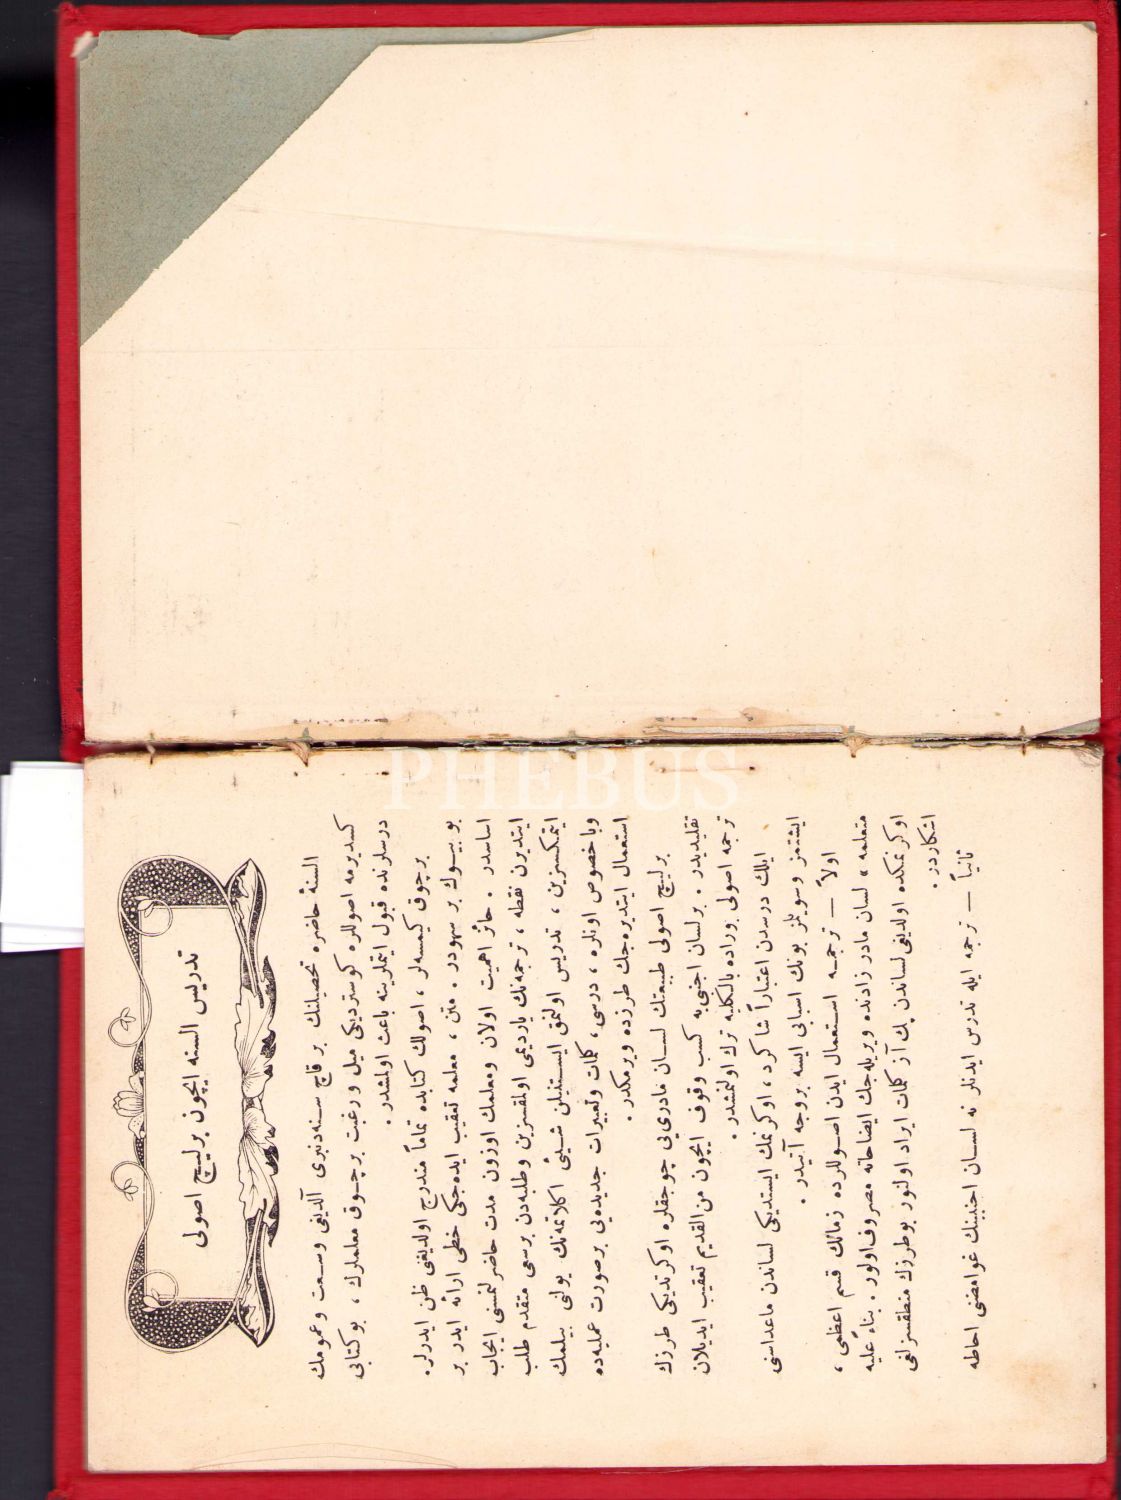 تدريس السنه ايچون برليچ اصولى
السنهٔ حاضره تحصيلنك بر قاچ سنه‌دنبرى آلديغى وسعت وعمومك
كسديرمه اصوللره كوستردیكی ميل و رغبت برچوق معلملرك ، بو كتابى
درسلرنده قبول ايتملرينه باعث اولمشدر .
برچوق كيمسه‌لر ، اصولك كتابده تماماً مندرج اولديغنى ظن ايدرلر .
بو بيوك بر سهودر . متن ، معلمه تعقيب ايده‌جكى خطى ارائه ايدر بر
اساسدر . حائز اهميت اولان ومعلمك اوزون مدت حاضرلنمسنى ايجاب
ايتديرن نقطه ، ترجمه‌نك ياردیمى اولمقسزين وطلبه‌دن برسعى متقدم طلب
ايتمكسزين ، تدريس اولنمق ايستنيلن شيئى اكلاتمه‌نك يولنى بيلمك
وباخصوص اونلره ، درسى ، كلمات وتعبيرات جديده‌يى برصورت عمليه‌ده
استعمال ايتديره‌جك طرزده ويرمكدر .
برليچ اصولى طبيعتك لسان مادرى‌يى چوجقلره اوكرتديكى طرزك
تقليديدر . برلسان اجنبى‌يه كسب وقوف ايچون من‌القديم تعقيب ايديلان
ترجمه اصولى بوراده بالكليه ترك اولنمشدر .
ايلك درسدن اعتباراً شاكرد ، اوكرنمك ايستديكى لساندن ماعداسنى
ايشتمز وسويلمز بونك اسبابى ايسه بروجه آتيدر .
اولاً — ترجمه استعمال ايدن اصوللرده زمانك قسم اعظمى ،
متعلمه » لسان مادرزادنده ويريله‌جك ايضاحاته مصروف‌اولور . بناءً عليه
اوكرنمكده اولديغى لساندن پك آز كلمات ايراد اولنور بوطرزك منطقسزلغى
اشكاردر .
ثانياً — ترجمه ايله تدرس ايدنلر نه لسان اجنبينك غوامضنى احاطه
PHEBUS